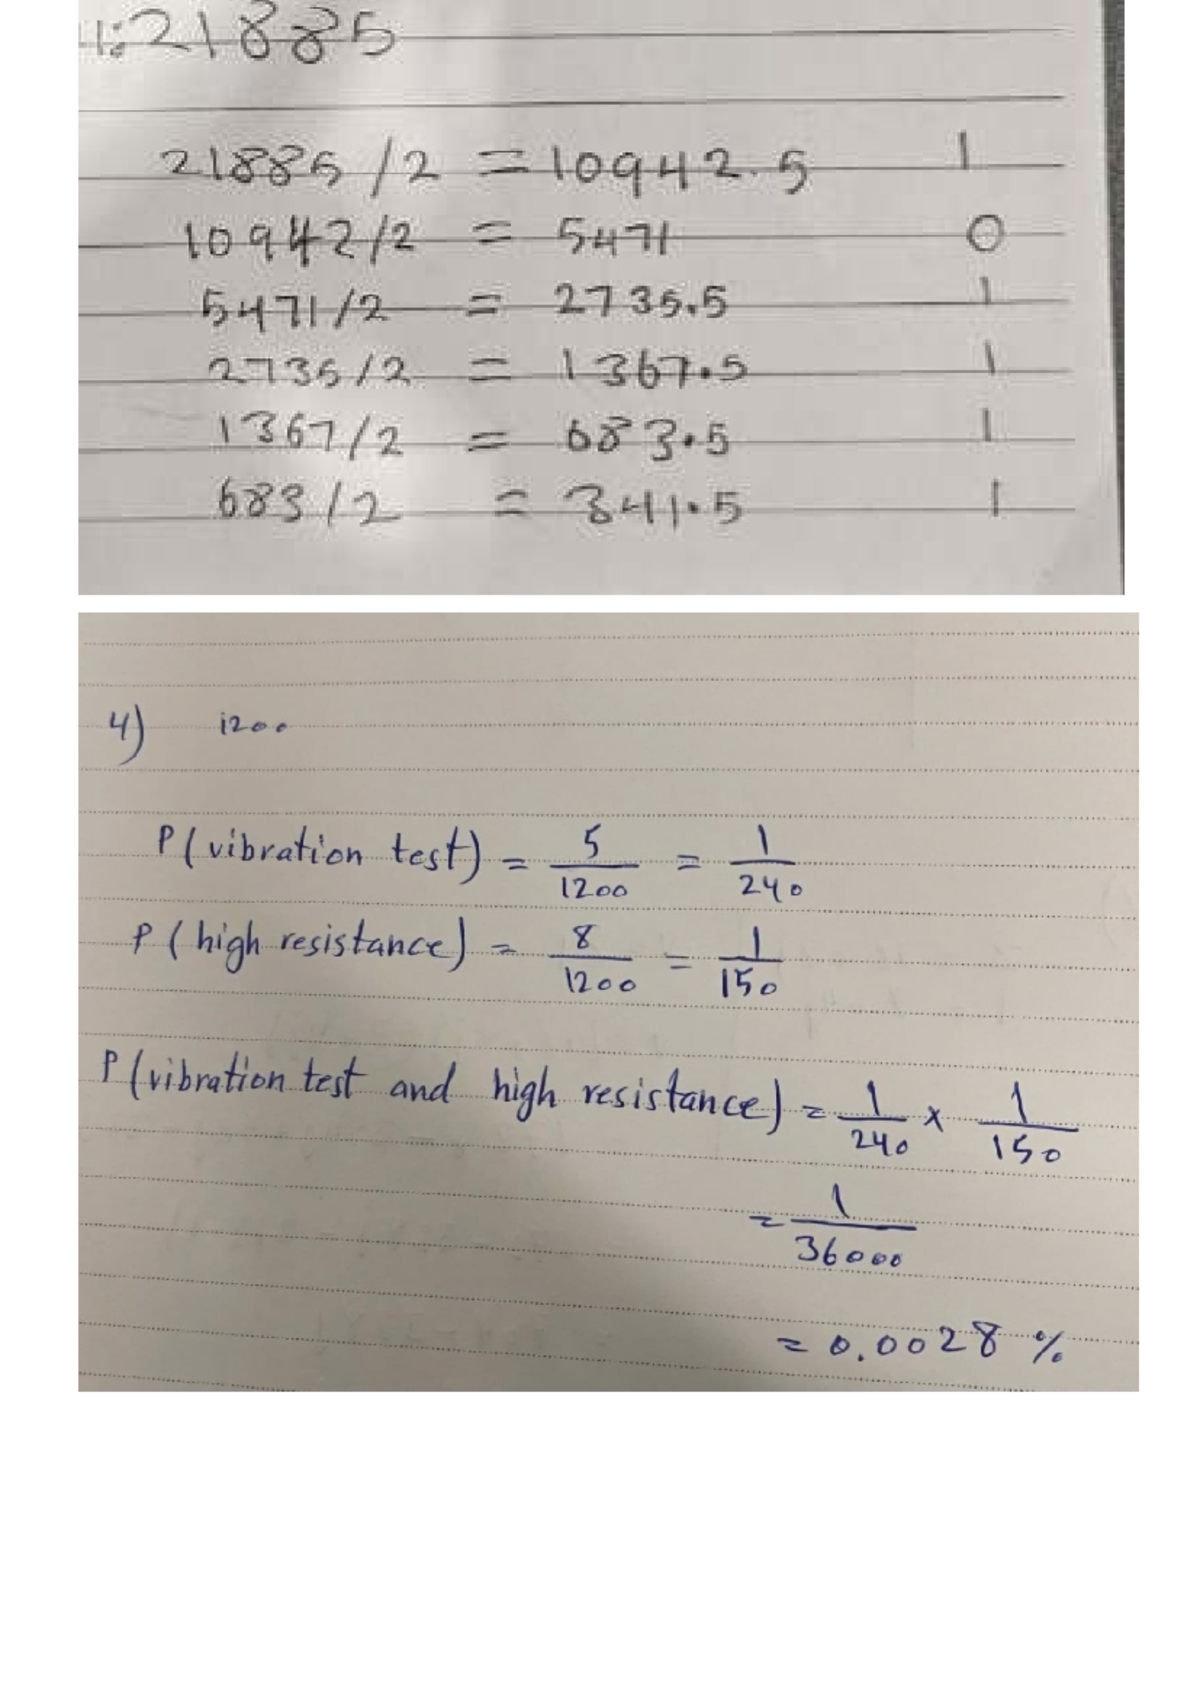 1:21885
21885/2 = 10942.5 1
10942/2 = 5471 0
5471/2 = 2735.5 1
2735/2 = 1367.5 1
1367/2 = 683.5 1
683/2 = 341.5 1
4) 1200
P(vibration test) = 5/1200 = 1/240
P(high resistance) = 8/1200 = 1/150
P(vibration test and high resistance) = 1/240 x 1/150
= 1/36000
= 0.0028 %